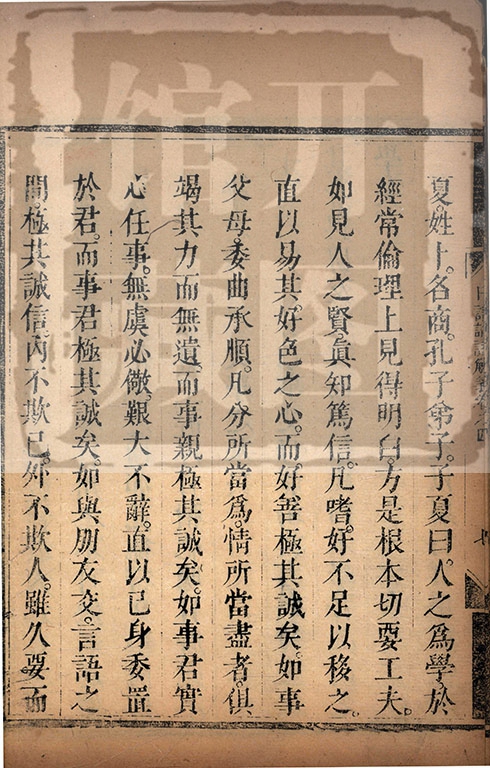 夏。姓卜。名商。孔子弟子。子夏曰。人之爲學。於
經常倫理上見得明白。方是根本切要工夫。
如見人之賢。眞知篤信。凡嗜好不足以移之。
直以易其好色之心。而好善極其誠矣。如事
父母。委曲承順。凡分所當爲。情所當盡者。俱
竭其力而無遺。而事親極其誠矣。如事君實
心任事。無虞必儆。艱大不辭。直以己身委置
於君。而事君極其誠矣。如與朋友交。言語之
間。極其誠信。內不欺己。外不欺人。雖久要而